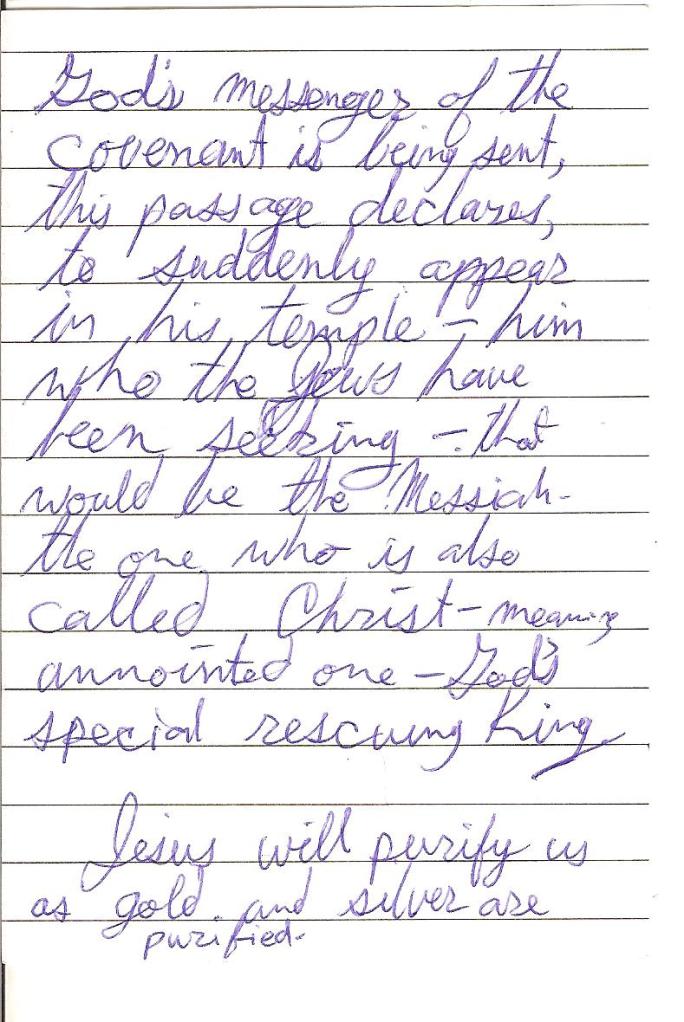 God's messenger of the
covenant is being sent,
this passage declares,
to suddenly appear
in his temple – him
who the Jews have
been seeking – that
would be the Messiah –
the one who is also
called Christ – meaning
annointed one – God's
special rescuing King
Jesus will purify us
as gold and silver are
purified.